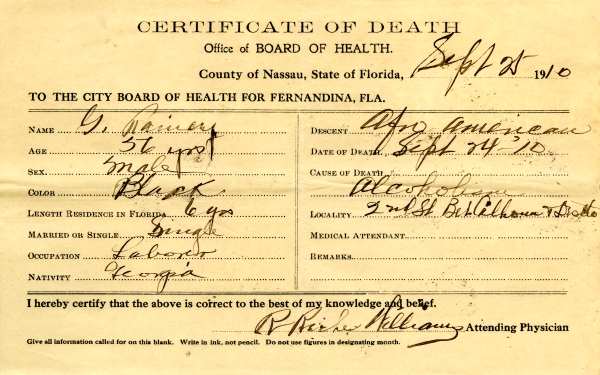 CERTIFICATE OF DEATH
Office of BOARD OF HEALTH.
County of Nassau, State of Florida, Sept 25 1910
TO THE CITY BOARD OF HEALTH FOR FERNANDINA, FLA.
NAME G.
AGE 36 yrs
SEX. Male
COLOR Black
LENGTH RESIDENCE IN FLORIDA 6 yrs
MARRIED OR SINGLE Single
OCCUPATION Laborer
NATIVITY Georgia
DESCENT Afro American
DATE OF DEATH Sept 24 '10
CAUSE OF DEATH
Alcoholism
LOCALITY 2nd St Bet Calhoun &
MEDICAL ATTENDANT
REMARKS
I hereby certify that the above is correct to the best of my knowledge and belief.
Williams Attending Physician
Give all information called for on this blank. Write in ink, not pencil. Do not use figures in designating month.